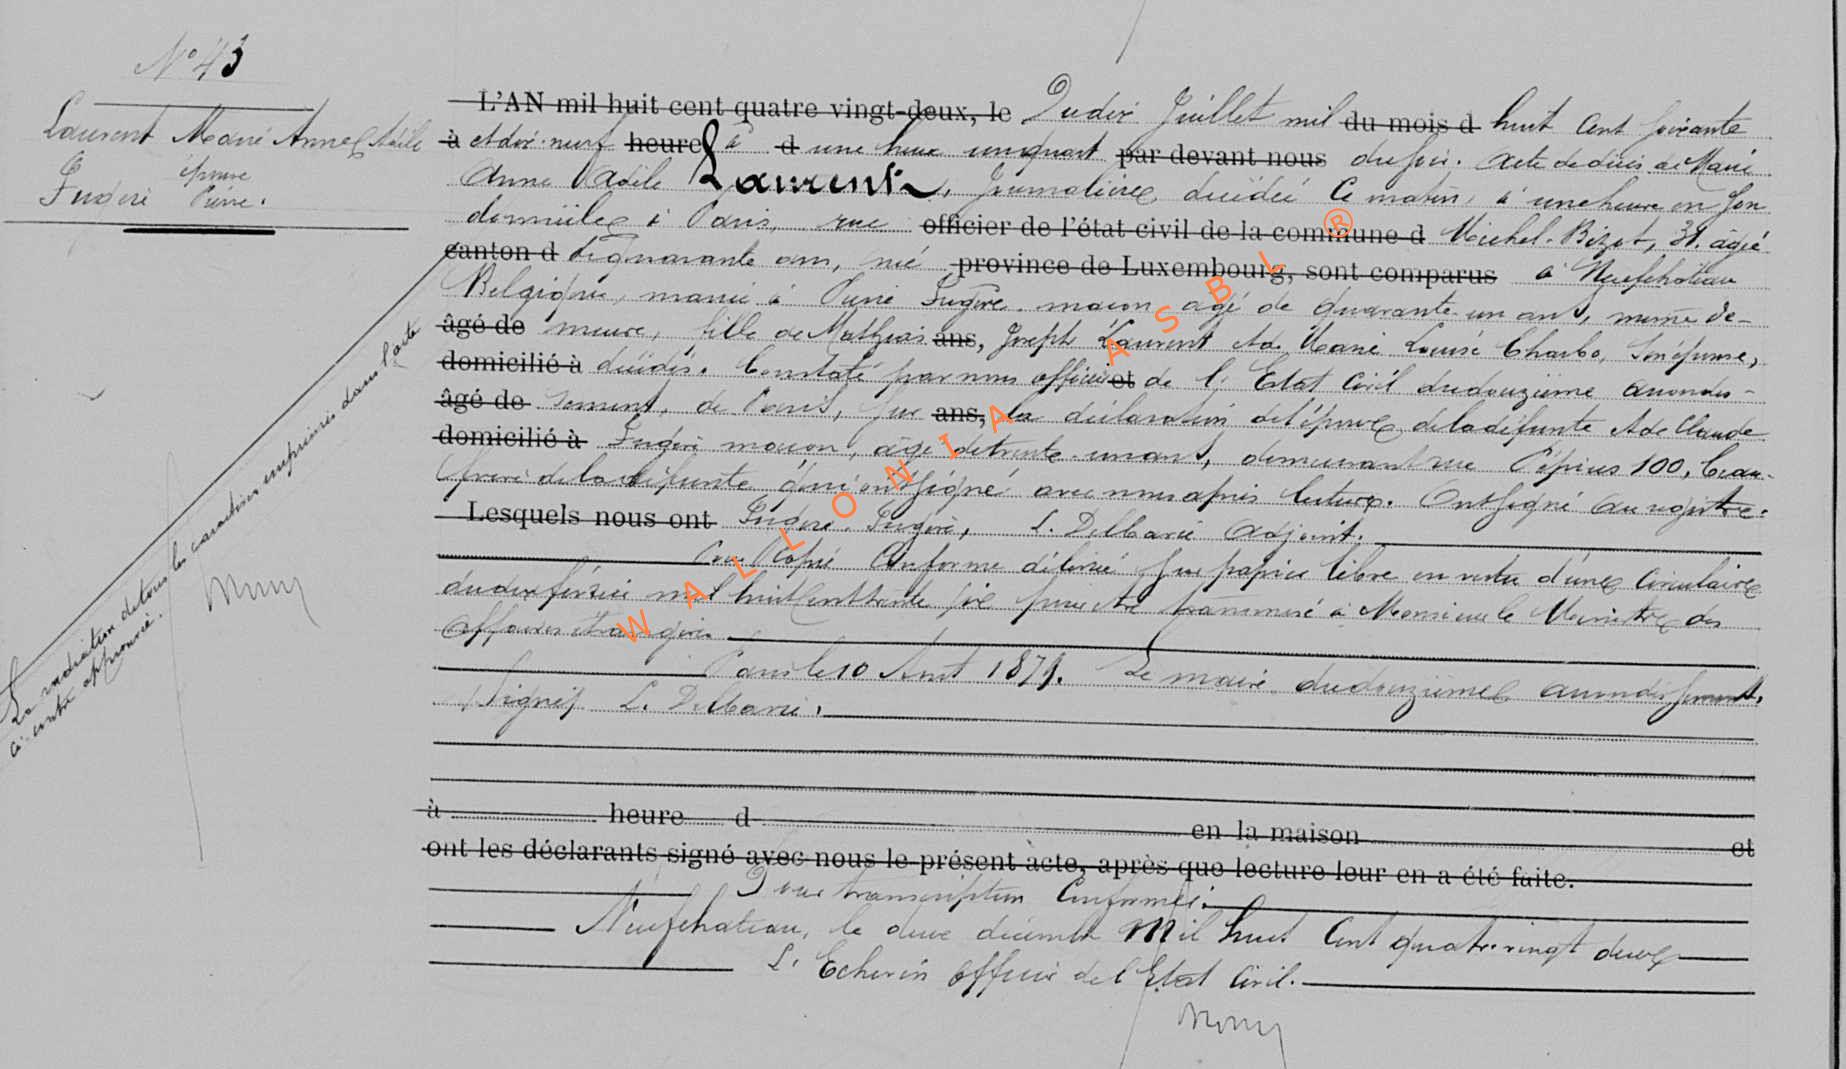 N° 43
Laurent Marie Anne Adèle
épouse
Fugère Pierre.
L'AN mil huit cent quatre vingt-deux, le Du dix Juillet mil du mois d huit cent soixante
à et dix-neuf heure à d une heure un quart par devant nous du soir. Acte de décès de Marie
Anne Adèle Laurent, journalière, décédée ce matin, à une heure en son
domicile à Paris, rue officier de l'état civil de la commune d Michel-Bizot, 31, âgée
canton d de quarante ans, née province de Luxembourg, sont comparus à Neufchâteau
Belgique, mariée à Pierre Fugère maçon âgé de quarante un ans, même de-
âgé de meure, fille de Mathias ans, Joseph Laurent et de Marie Louise Charbo, son épouse,
domicilié à décédés. Constaté par nous officier et de l'Etat Civil du douzième arrondis-
âgé de sement, de Paris, sur ans, la déclaration de l'époux de la défunte et de Claude
domicilié à Fugère maçon, âgé de trente un ans, demeurant rue 100,
frère de la défunte qui ont signé avec nous après lecture. Ont signé au registre:
Lesquels nous ont Fugère. Fugère, L. Delbarre adjoint.
Pour Copie Conforme délivrée sur papier libre en vertu d'une Circulaire
du dix février mil huit cent trente six pour être transmise à Monsieur le Ministre des
affaires étrangères.
Paris le 10 Août 1879. Le maire du douzième arrondissement,
Signé, L. Delbarre.
à heure d en la maison et
ont les déclarants signé avec nous le présent acte, après que lecture leur en a été faite.
Pour transcription Conforme:
Neufchateau, le deux décembre Mil huit Cent quatre-vingt deux
L'Echevin officier de l'Etat Civil.
La radiation de tous les caractères imprimés dans l'acte
ci-contre approuvée.
WALLONIA ASBL ®